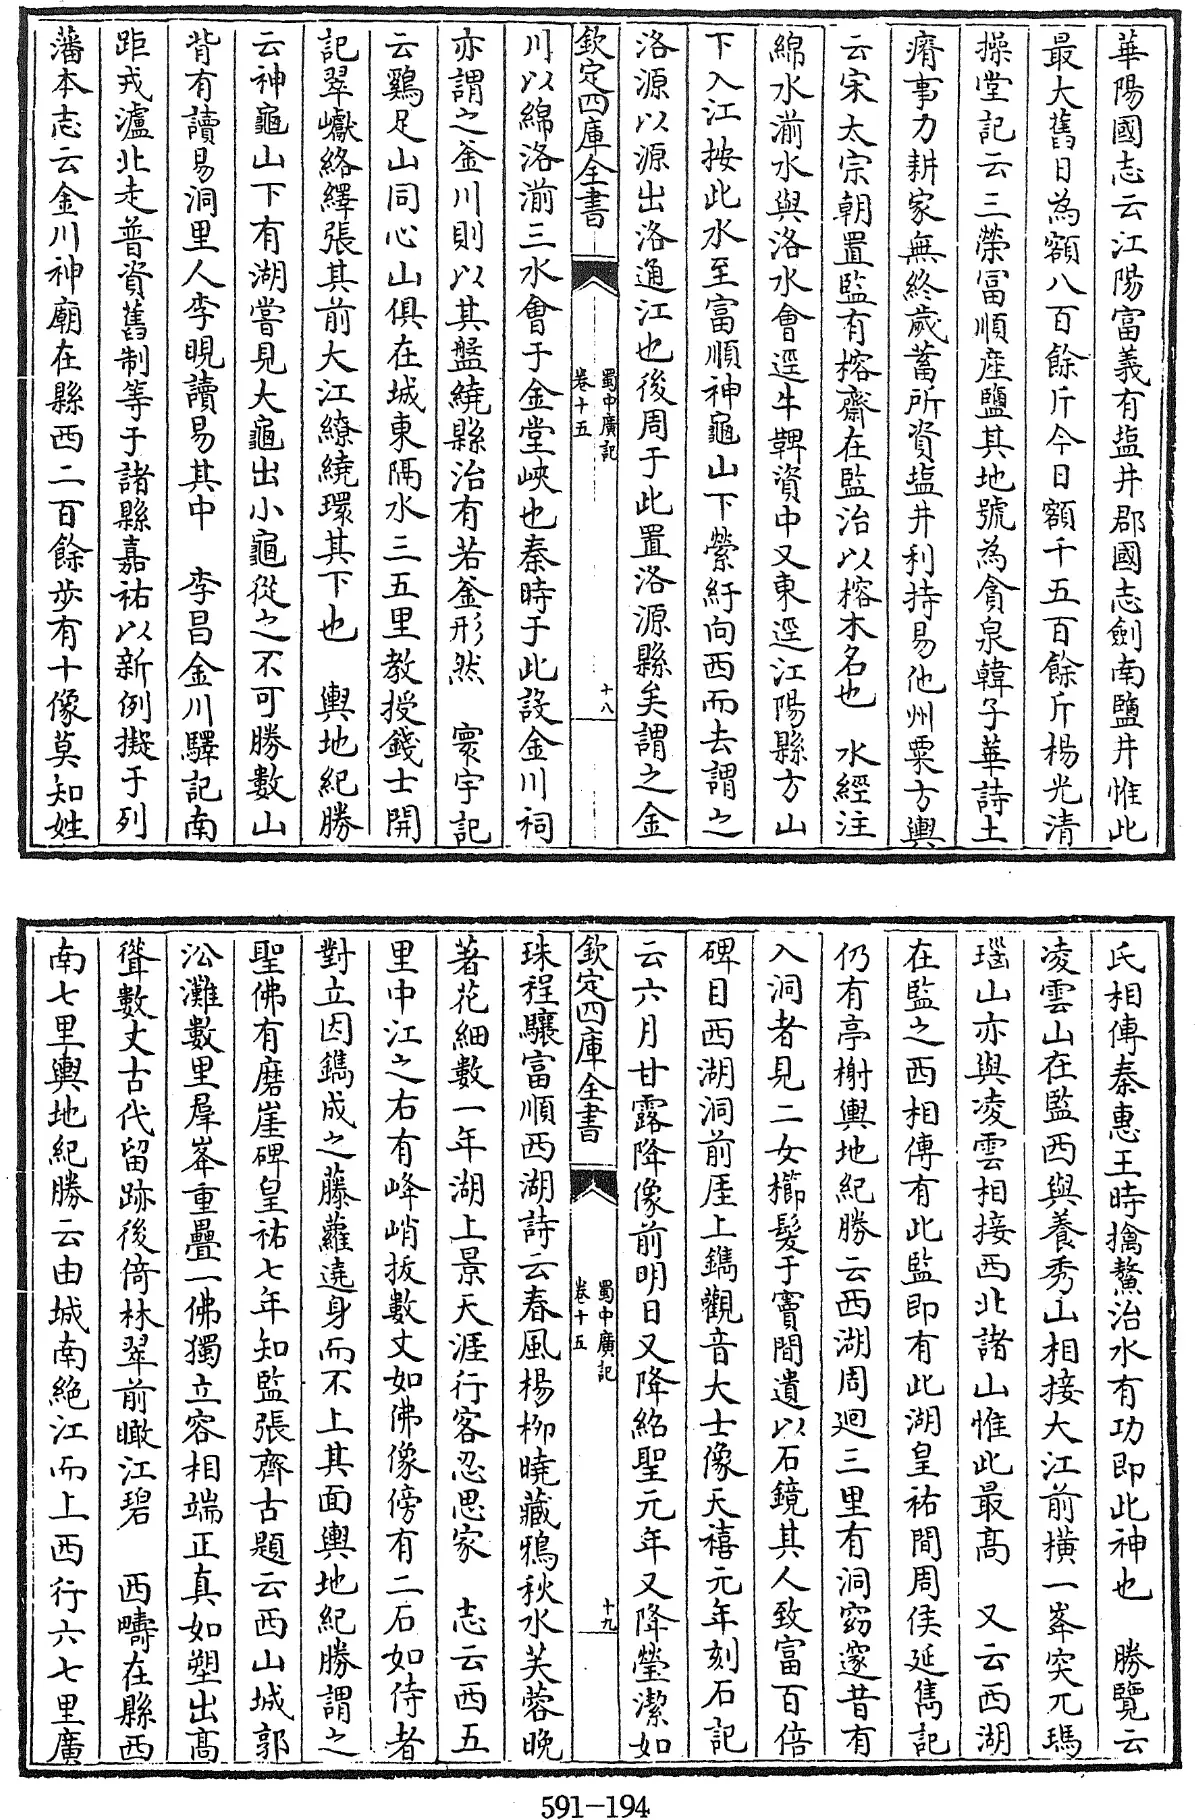 華陽國志云江陽富義有塩井郡國志劍南鹽井惟此
最大舊日為額八百餘斤今日額千五百餘斤楊光清
操堂記云三榮富順産鹽其地號為貪泉韓子華詩土
瘠事力耕家無終歲蓄所資塩井利持易他州粟方輿
云宋太宗朝置監有榕齋在監治以榕木名也　水經注
綿水湔水與洛水會逕牛鞞資中又東逕江陽縣方山
下入江按此水至富順神龜山下縈紆向西而去謂之
洛源以源出洛通江也後周于此置洛源縣矣謂之金
欽定四庫全書
蜀中廣記
卷十五
十八
川以綿洛湔三水會于金堂峽也秦時于此設金川祠
亦謂之釜川則以其盤繞縣治有若釜形然　寰宇記
云鷄足山同心山俱在城東隔水三五里教授錢士開
記翠巘絡繹張其前大江繚繞環其下也　輿地紀勝
云神龜山下有湖嘗見大龜出小龜從之不可勝數山
背有讀易洞里人李見讀易其中　李昌金川驛記南
距戎瀘北走普資舊制等于諸縣嘉祐以新例擬于列
藩本志云金川神廟在縣西二百餘步有十像莫知姓
氏相傳秦惠王時擒鰲治水有功即此神也　勝覽云
凌雲山在監西與養秀山相接大江前横一峯突兀瑪
瑙山亦與凌雲相接西北諸山惟此最高　又云西湖
在監之西相傳有此監即有此湖皇祐間周侯延雋記
仍有亭榭輿地紀勝云西湖周迴三里有洞窈邃昔有
入洞者見二女櫛髮于竇間遺以石鏡其人致富百倍
碑目西湖洞前厓上鐫觀音大士像天禧元年刻石記
云六月甘露降像前明日又降紹聖元年又降瑩潔如
欽定四庫全書
蜀中廣記
卷十五
十九
珠程驤富順西湖詩云春風楊栁曉藏鴉秋水芙蓉晚
著花細數一年湖上景天涯行客忍思家　志云西五
里中江之右有峰峭拔數丈如佛像傍有二石如侍者
對立因鐫成之藤蘿遶身而不上其面輿地紀勝謂之
聖佛有磨崖碑皇祐七年知監張齊古題云西山城郭
㳂灘數里羣峯重疊一佛獨立容相端正真如塑出高
聳數丈古代留跡後倚林翠前瞰江碧　西疇在縣西
南七里輿地紀勝云由城南絶江而上西行六七里廣
591-194